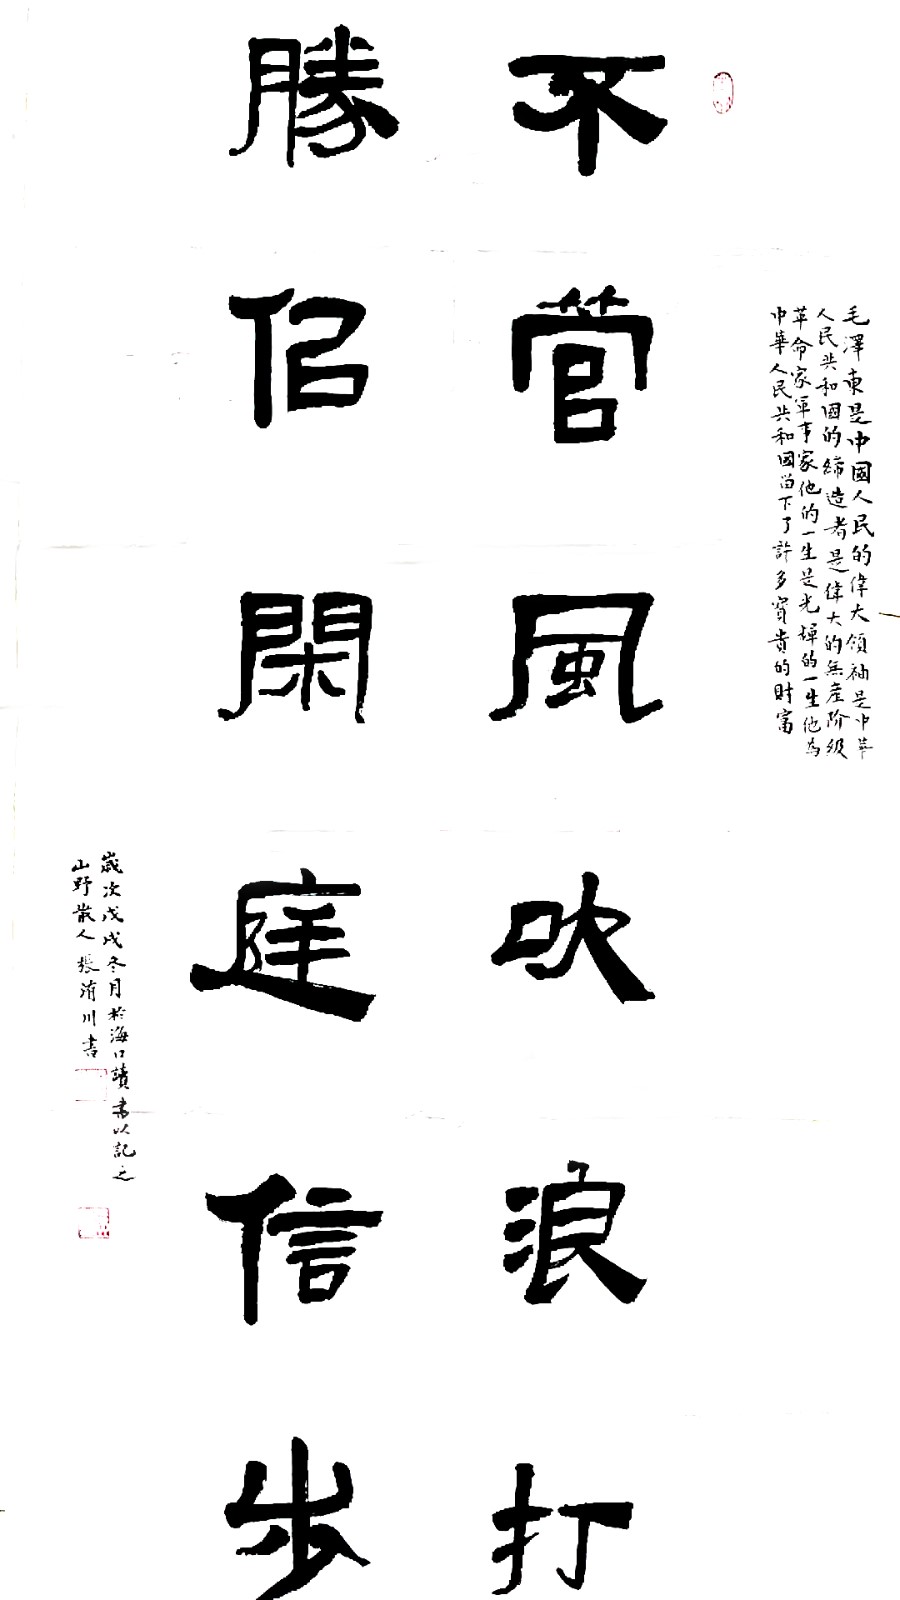 毛澤東是中國人民的偉大領袖是中華
人民共和國的締造者是偉大的無産阶级
革命家軍事家他的一生是光輝的一生他為
中華人民共和國留下了許多寳貴的財富
不管風吹浪打
勝似閑庭信步
歲次戊戌冬月於海口讀書以記之
山野散人張川書